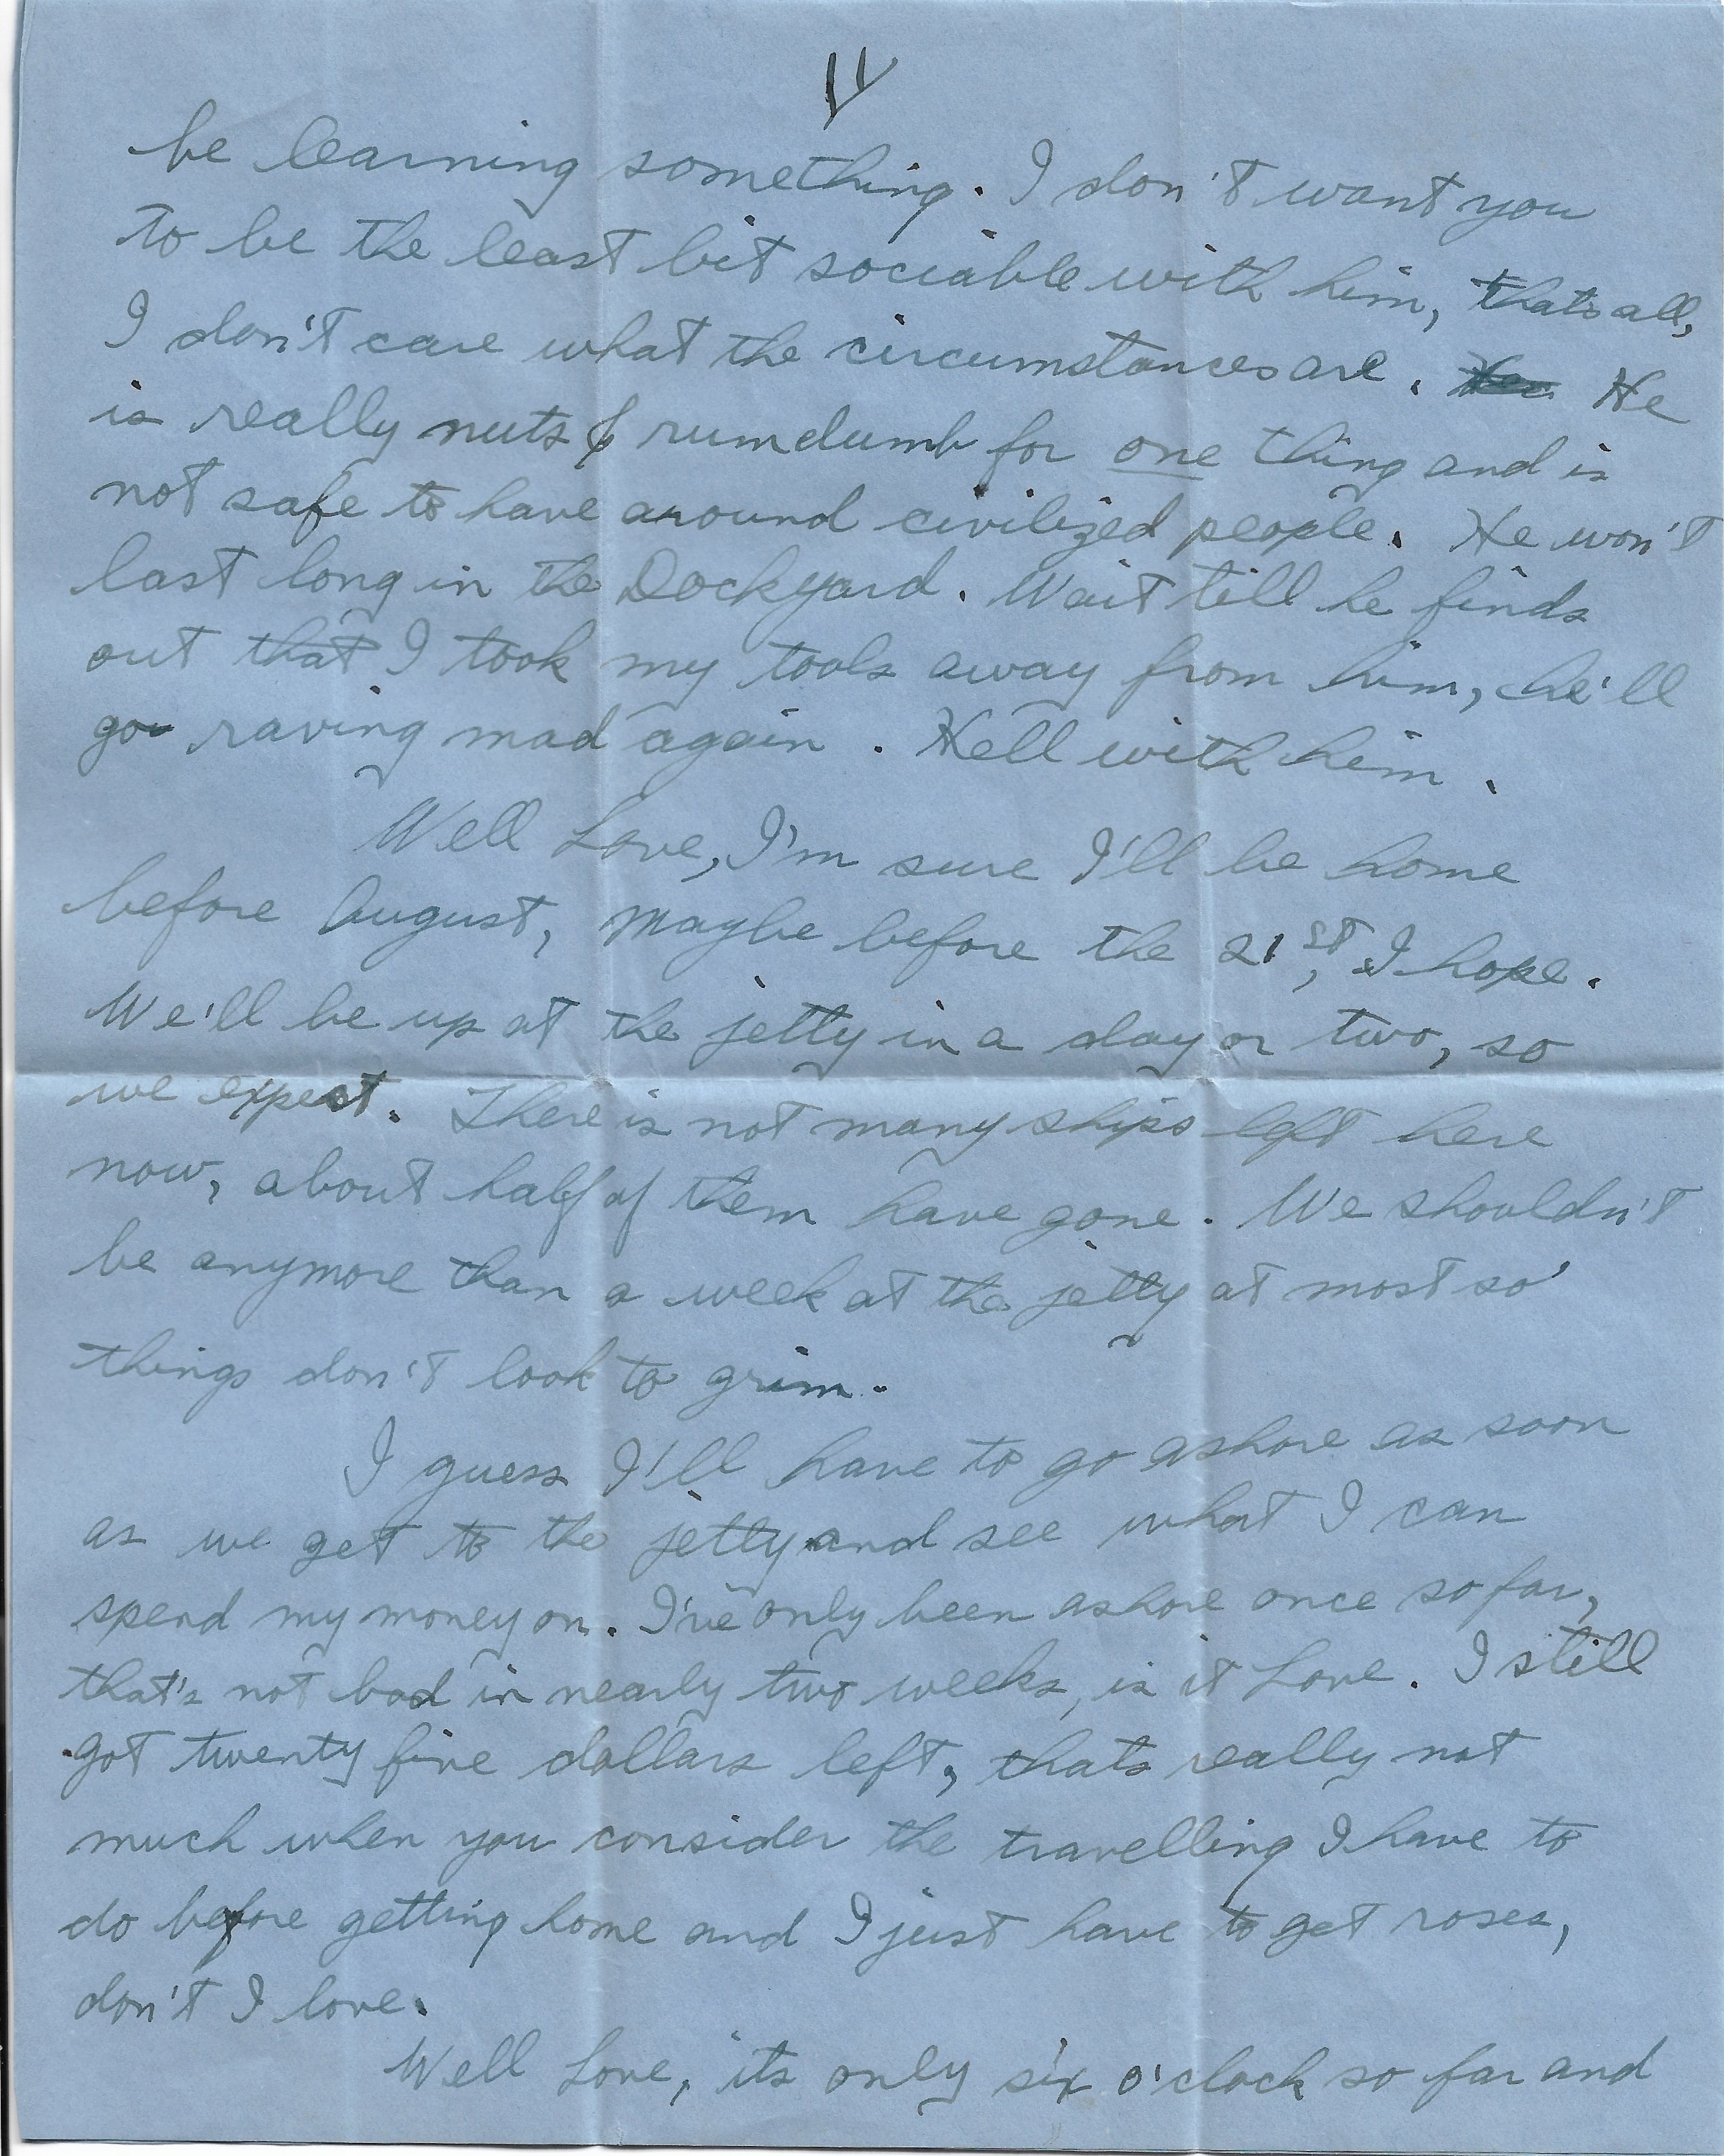 be learning something. I don't want you
to be the least bit sociable with him, thats all,
I don't care what the circumstances are. He
is really nuts & rumdumb for one thing and is
not safe to have around civilized people. He won't
last long in the Dockyard. Wait till he finds
out that I took my tools away from him, he'll
go raving mad again. Hell with him.
Well Love, I'm sure I'll be home
before August, maybe before the 21st, I hope.
We'll be up at the jetty in a day or two, so
we expect. There is not many ships left here
now, about half of them have gone. We shouldn't
be anymore than a week at the jetty at most so
things don't look to grim.
I guess I'll have to go ashore as soon
as we get to the jetty and see what I can
spend my money on. I've only been ashore once so far,
that's not bad in nearly two weeks, is it Love. I still
got twenty five dollars left, thats really not
much when you consider the travelling I have to
do before getting home and I just have to get roses,
don't I love.
Well Love, its only six o'clock so far and